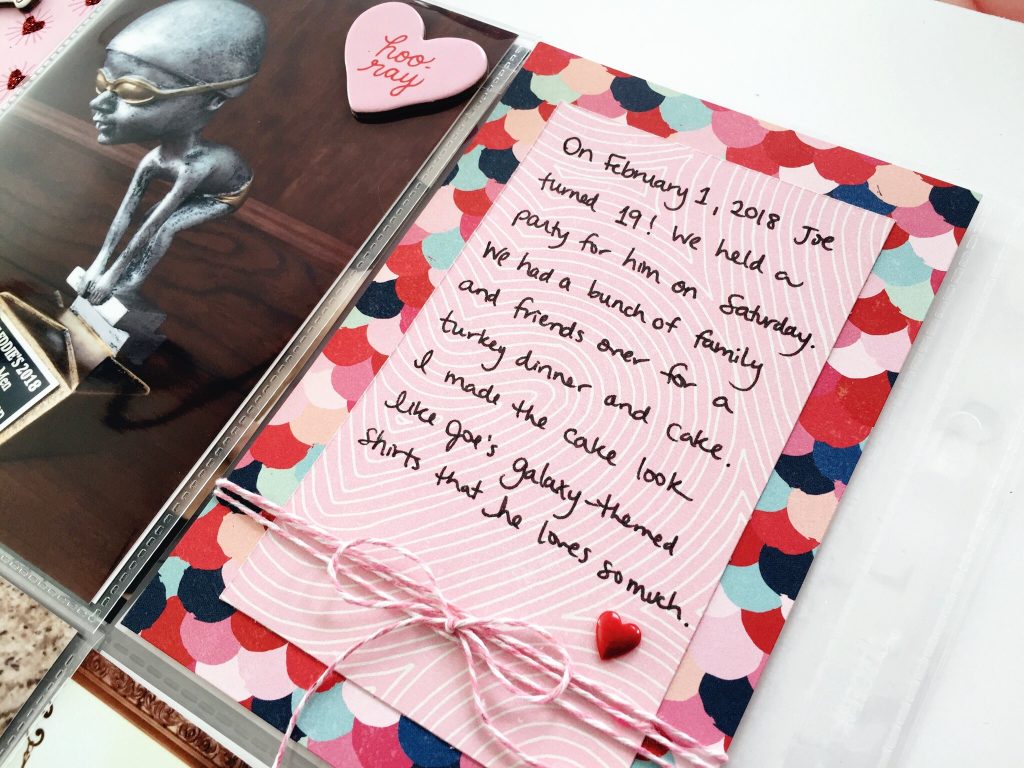 hoo-
ray
On February 1, 2018 Joe
turned 19! We held a
party for him on Saturday.
We had a bunch of family
and friends over for a
turkey dinner and cake.
I made the cake look
like Joe's galaxy-themed
shirts that he loves so much.
2018
Men